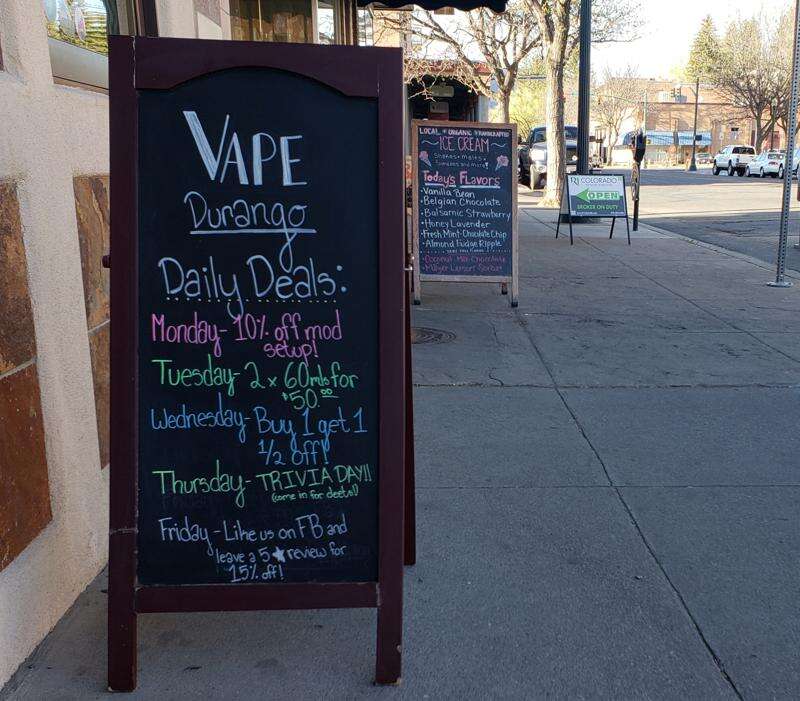 VAPE
Durango
Daily Deals:
Monday- 10% off mod
setup!
Tuesday- 2 x 60mls for
$50.00
Wednesday- Buy 1 get 1
1/2 off!
Thursday- TRIVIA DAY!!
(come in for deets!)
Friday - Like us on FB and
leave a 5★ review for
15% off!
LOCAL • ORGANIC • HANDCRAFTED
ICE CREAM
Shakes • Malts •
Sundaes and more!
Today's Flavors
• Vanilla Bean
• Belgian Chocolate
• Balsamic Strawberry
• Honey Lavender
• Fresh Mint-Chocolate Chip
• Almond Fudge Ripple
• Coconut Milk Chocolate
• Meyer Lemon Sorbet
COLORADO
OPEN
BROKER ON DUTY